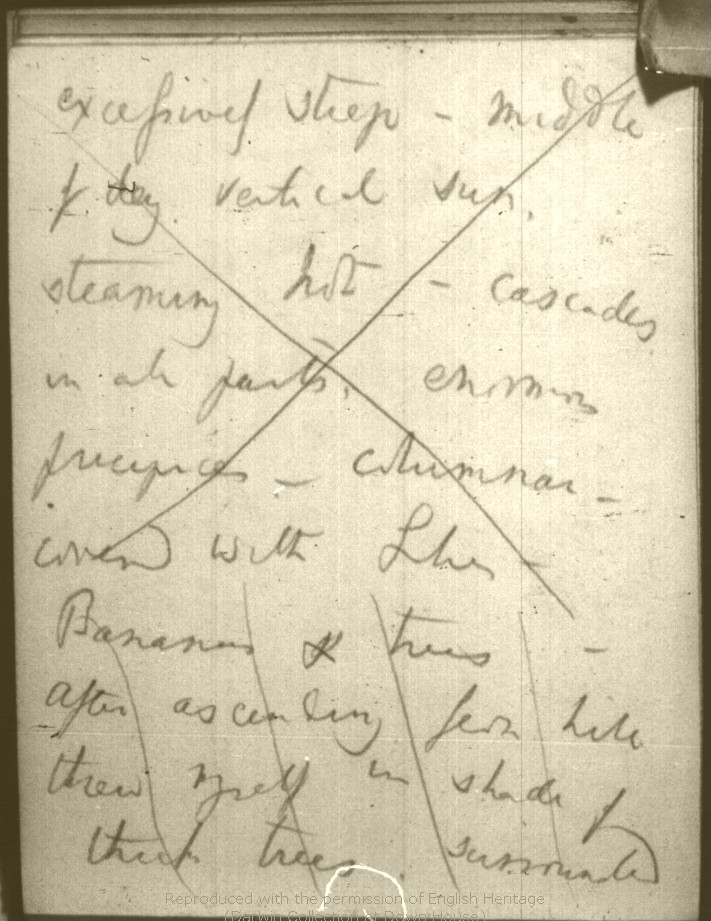 excessively steep - middle
of day. vertical sun.
steaming hot - cascades
in all parts. enormous
precipices - columnar -
covered with Lilies -
Bananas & trees -
after ascending fern hill
threw myself in shade of
thick trees. surrounded
Reproduced with the permission of English Heritage
(Darwin Collection at Down House)